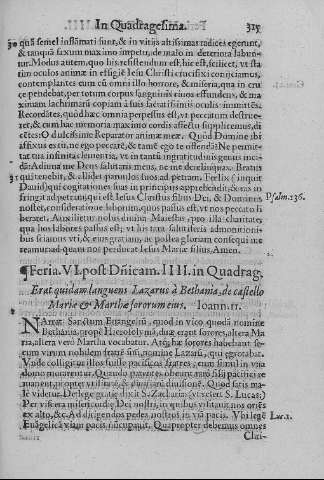 In Quadragesima. 325
30 quā semel inflāmati sunt, & in vitijs altissimas radices egerunt,
& tanquā saxum maximo impetu, de malo in deteriora labūn-
tur. Modus autem, quo his resistendum est, hic est, scilicet, vt sta
tim oculos animæ in effigiē Iesu Christi crucifixi conijciamus,
contemplantes eum cū omni illo horrore, & miseria, qua in cru
ce pendebat, per totum corpus sanguinē eius effundens, & ma
ximam lachrimarū copiam à suis sacratissimis oculis immittēs.
Recordātes, quòd hæc omnia perpessus est, vt peccatum destrue-
ret, & cum hac memoria maximo cordis affectu supplicemus, di
cētes: O dulcissime Reparator animæ meæ. Quòd Domine ibi
affixus es tu, ne ego peccarē, & tamē ego te offendā? Ne permit-
tat tua infinita clementia, vt in tanta ingratitudinis genus inci-
dā: Adiuua me Deus salutaris meus, ne me derelinquas. Beatus
qui tenebit, & allidet paruulos suos ad petram. Felix (inquit
Dauid) qui cogitationes suas in principijs apprehendit, & eas in
fringit ad petram, qui est Iesus Christus filius Dei, & Dominus Psalm. 136.
noster, consideratione laborum, quos passus est, vt nos peccati li
beraret. Auxilietur nobis diuina Maiestas, pro illa charitate,
qua hos labores passus est, vt his tam salutaribus admonitioni-
bus sciamus vti, & eius gratiam, ac postea gloriam consequi me
reamur, ad quam nos perducat Iesus Mariæ filius. Amen.
¶Feria. VI. post Dñicam. IIII. in Quadrag.
Erat quidam languens Lazarus à Bethania, de castello
Mariæ & Marthæ sororum eius. Ioann. 11.
NArrat Sanctum Euangeliū, quòd in vico quodā nomine
Bethania, propè Hierosolymā, duæ erant sorores, altera Ma
ria, altera verò Martha vocabatur. Atq; hæ sorores habebant se-
cum vnum nobilem fratrē suū, nomine Lazarū, qui ęgrotabat.
Vnde colligitur illos fuisse pacificos fratres, cum simul in vna
domo morarentur. Quando patre
Quod satis ma-
lè videtur. De lege gratię dixit S. Zacharias (vt refert S. Lucas:)
Per viscera misericordię Dei nostri, in quibus visitauit nos oriēs
ex alto, &c. Ad dirigendos pedes nostros in viā pacis. Vbi legē Luc. 1.
Euāgelicā viam pacis nūcupauit. Quapropter debemus omnes
Chri-